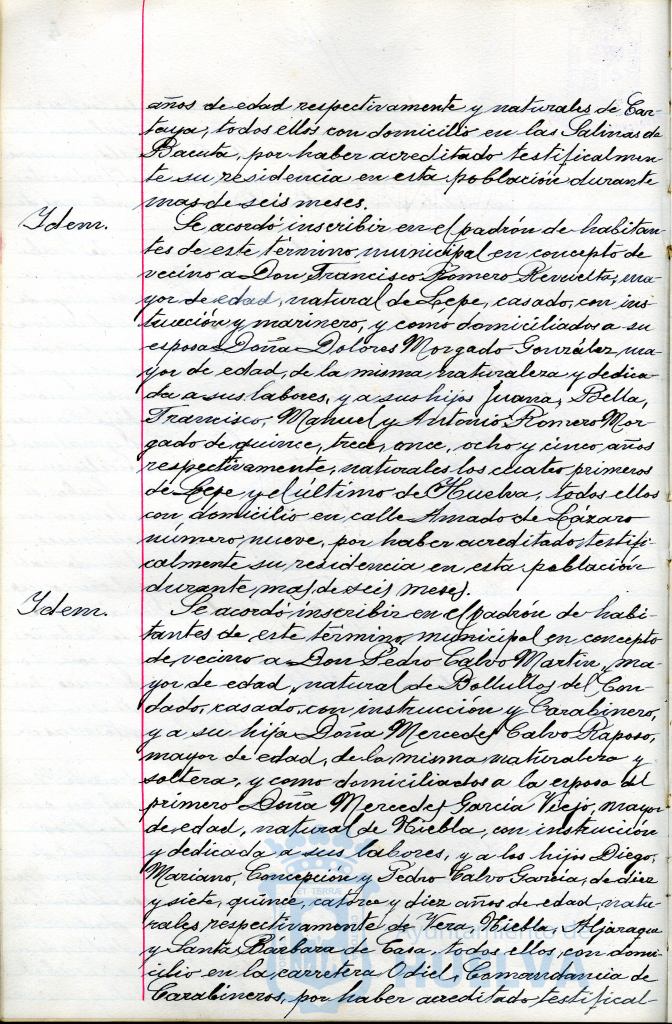 años de edad respectivamente y naturales de Car-
taya, todos ellos con domicilio en las Salinas de
Bacuta, por haber acreditado testificalmen-
te su residencia en esta poblacion durante
mas de seis meses.
Idem.
Se acordó inscribir en el padrón de habitan-
tes de este término municipal en concepto de
vecino a Don Francisco Romero Revuelta, ma-
yor de edad, natural de Lepe, casado, con ins-
trucción y marinero, y como domiciliados a su
esposa Doña Dolores Morgado González, ma-
yor de edad, de la misma naturaleza y dedica-
da a sus labores, y a sus hijos Juana, Bella,
Francisco, Manuel y Antonio Romero Mor-
gado de quince, trece, once, ocho y cinco años
respectivamente, naturales los cuatro primeros
de Lepe y el último de Huelva, todos ellos
con domicilio en calle Amado de Lázaro
número nueve, por haber acreditado testifi-
calmente su residencia en esta población
durante mas de seis meses.
Idem.
Se acordó inscribir en el padrón de habi-
tantes de este término municipal en concepto
de vecino a Don Pedro Calvo Martin, ma-
yor de edad, natural de Bollullos del Con-
dado, casado, con instrucción y Carabinero,
y a su hija Doña Mercedes Calvo Raposo,
mayor de edad, de la misma naturaleza y
soltera, y como domiciliados a la esposa del
primero Doña Mercedes García Viejo, mayor
de edad, natural de Niebla, con instrucción
y dedicada a sus labores, y a los hijos Diego,
Mariano, Concepción y Pedro Calvo García, de diez
y siete, quince, catorce y diez años de edad, natu-
rales respectivamente de Vera, Niebla, Aljaraque
y Santa Bárbara de Casa, todos ellos con domi-
cilio en la carretera Odiel, Comandancia de
Carabineros, por haber acreditado testifical-
Ayuntamiento de
HUELVA